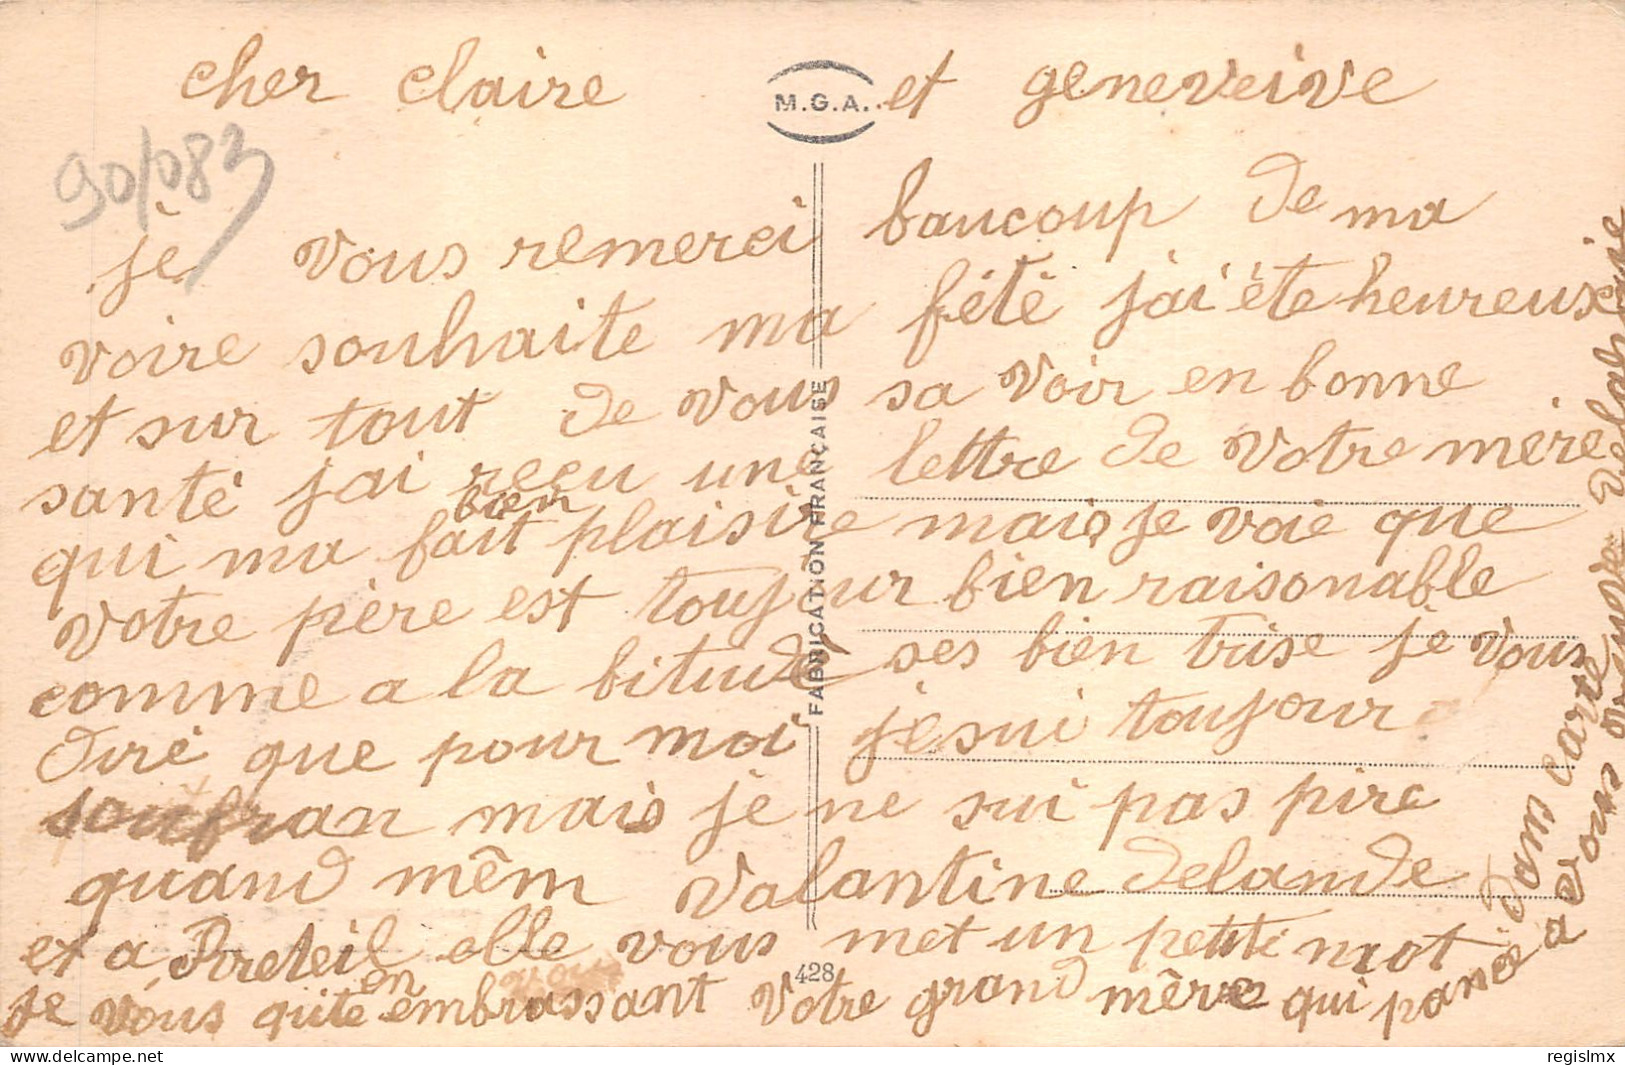 cher claire et geneveive
M.G.A.
90/083
je vous remerci baucoup de ma
voire souhaite ma fété j'ai éte heureux
et sur tout de vous sa voir en bonne
santé j'ai reçu une lettre de votre mére
bien
qui ma fait plaisire mais je voie que
votre père est toujour bien raisonable
comme a la bitude ses bien trise je vous
diré que pour moi je sui toujour
soufran mais je ne sui pas pire
quand mêm Valantine delande
et a elle vous met un petit mot
en
je vous quite embrassant votre grand mère qui pance a vous
dans carte
FABRICATION FRANÇAISE
428
regislmx